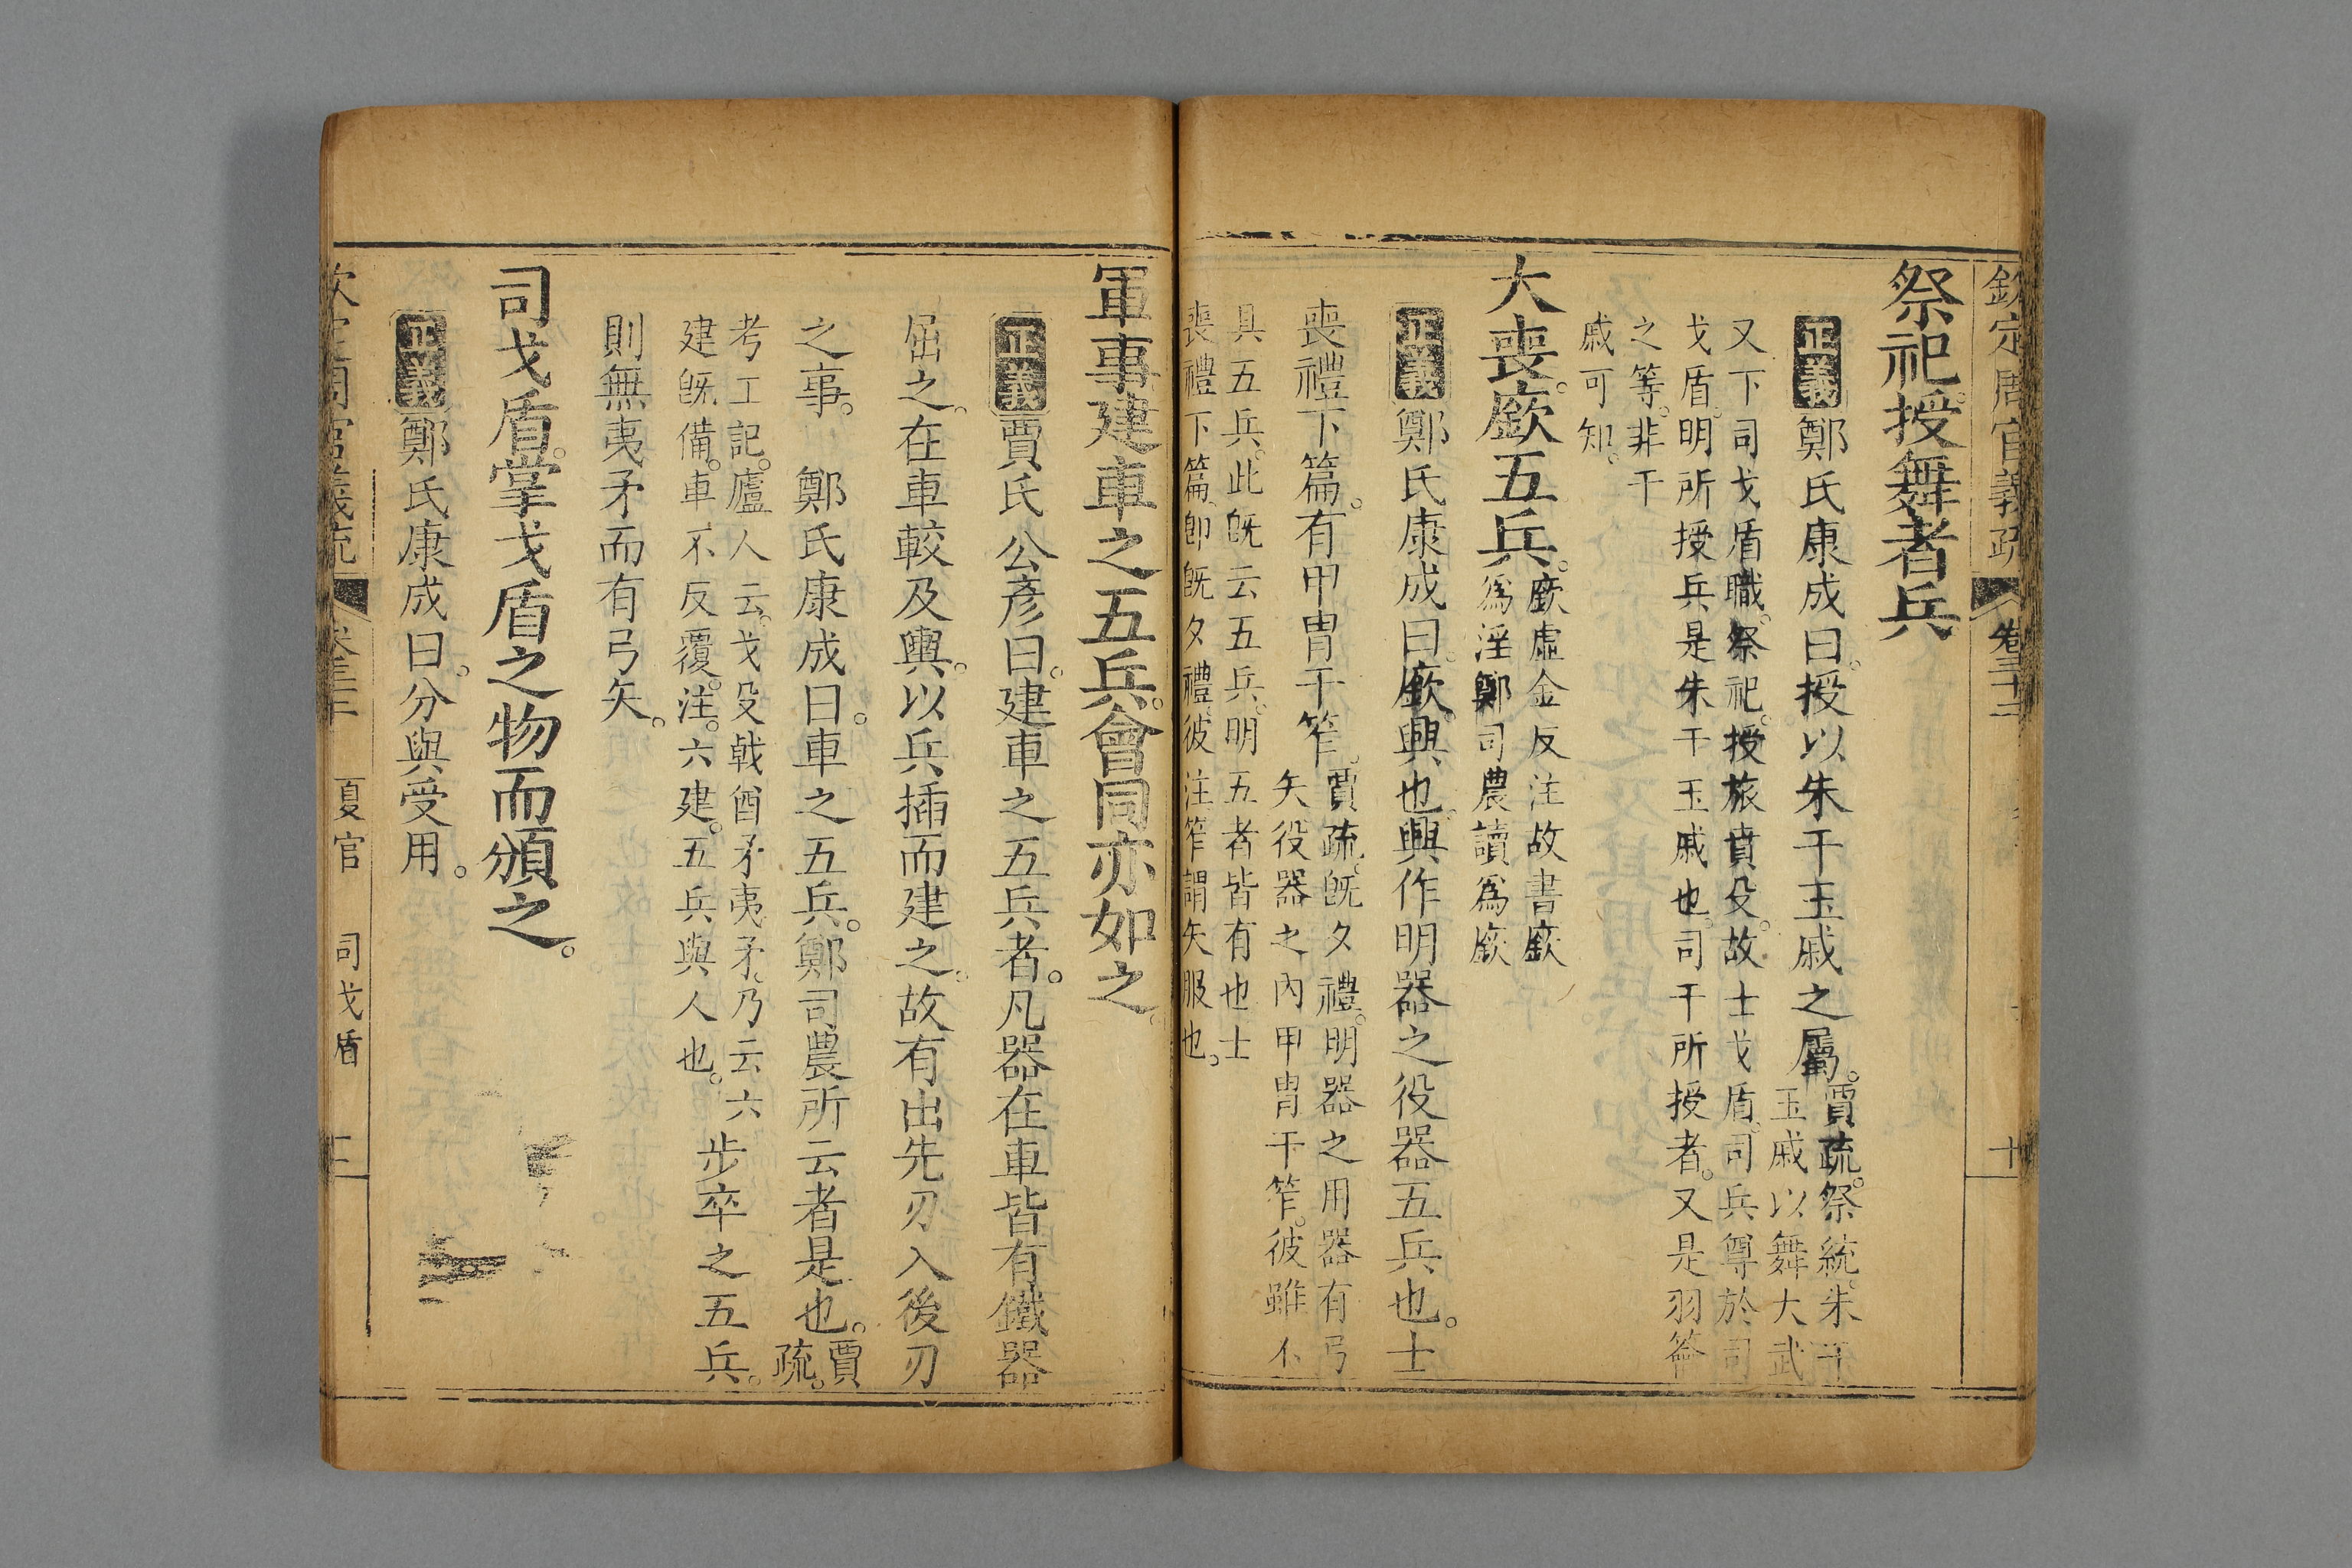 欽定周官義疏 卷三十二 十
祭祀授舞者兵
正義鄭氏康成曰。授以朱干玉戚之屬。賈疏。祭統。朱干
玉戚以舞大武
又下司戈盾職。祭祀。授旅賁殳。故士戈盾。司兵尊於司
戈盾。明所授兵是朱干玉戚也。司干所授者。又是羽籥
之等。非干
戚可知。
大喪。廞五兵。廞虛金反注故書廞
爲淫鄭司農讀爲廞
正義鄭氏康成曰。廞。興也。興作明器之役器五兵也。士
喪禮下篇。有甲冑干笮。賈疏。旣夕禮。明器之用器有弓
矢役器之內甲冑干笮。彼雖不
具五兵。此旣云五兵。明五者皆有也士
喪禮下篇。卽旣夕禮。彼注笮謂矢服也。
軍事建車之五兵。會同亦如之。
正義賈氏公彥曰。建車之五兵者。凡器在車皆有鐵器
屈之。在車較及輿。以兵插而建之。故有出先刃入後刃
之事。 鄭氏康成曰。車之五兵。鄭司農所云者是也。賈
疏。
考工記。廬人云。戈殳戟酋矛夷矛。乃云六
建旣備。車不反覆。注。六建。五兵與人也。步卒之五兵。
則無夷矛而有弓矢。
司戈盾。掌戈盾之物而頒之。
正義鄭氏康成曰。分與受用。
欽定周官義疏 卷三十二 夏官 司戈盾